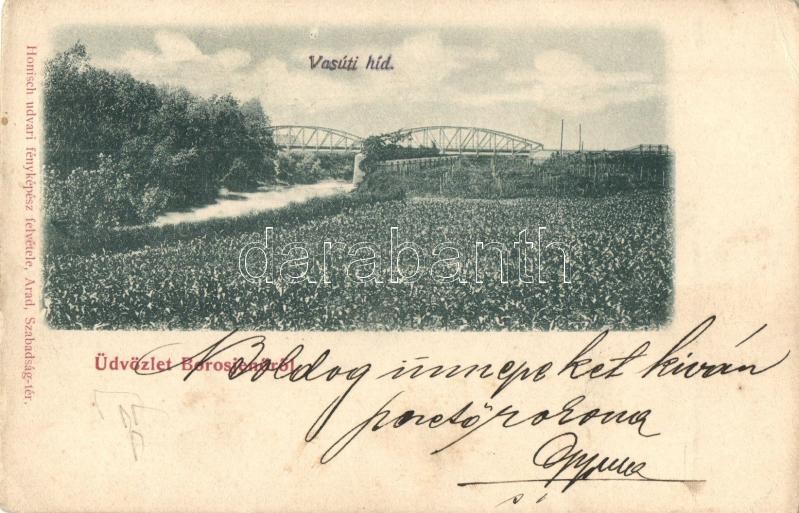 Vasúti híd.
Honisch udvari fényképész felvétele, Arad, Szabadság-tér.
darabanth
Üdvözlet Borosjenőről
Boldog ünnepeket kiván
rokona